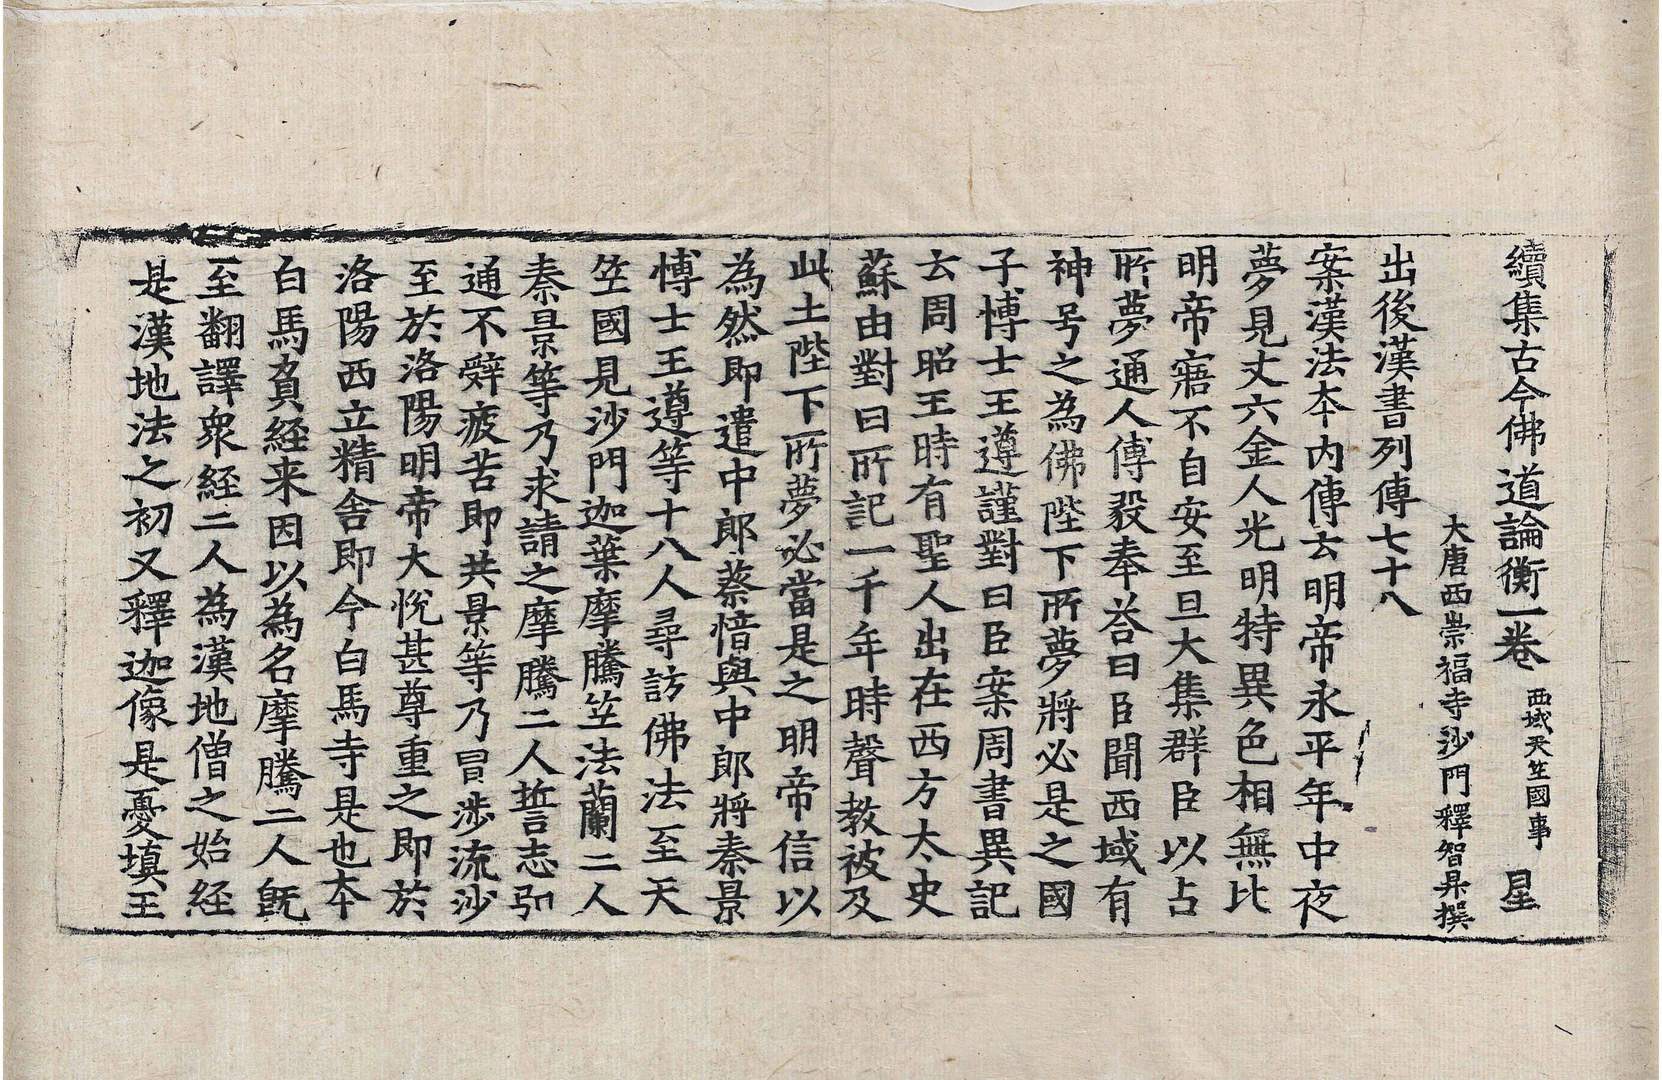 續集古今佛道論衡一卷 西域天竺國事 星
大唐西崇福寺沙門釋智昇撰
出後漢書列傳七十八
案漢法本内傳云明帝永平年中夜
夢見丈六金人光明特異色相無比
明帝寤不自安至旦大集群臣以占
所夢通人傅毅奉荅曰臣聞西域有
神号之為佛陛下所夢將必是之國
子博士王遵謹對曰臣案周書異記
云周昭王時有聖人出在西方太史
蘇由對曰所記一千年時聲教被及
此土陛下所夢必當是之明帝信以
為然即遣中郎蔡愔與中郎將秦景
博士王遵等十八人尋訪佛法至天
竺國見沙門迦葉摩騰竺法蘭二人
秦景等乃求請之摩騰二人誓志弘
通不辤疲苦即共景等乃冒涉流沙
至於洛陽明帝大悅甚尊重之即於
洛陽西立精舍即今白馬寺是也本
白馬負経来因以為名摩騰二人旣
至翻譯衆経二人為漢地僧之始経
是漢地法之初又釋迦像是憂填王